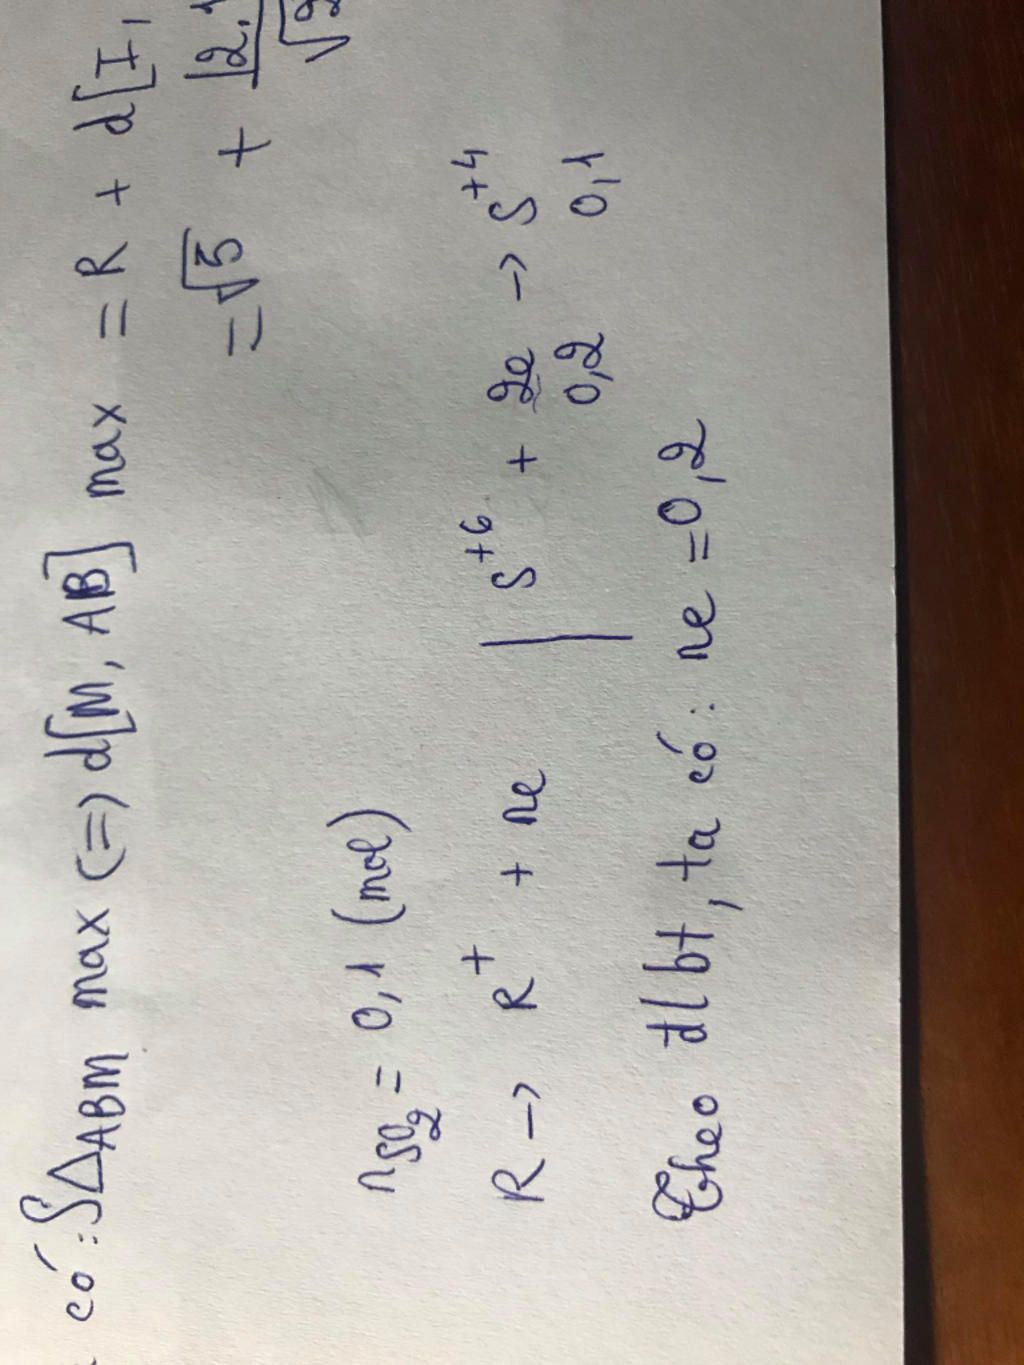 có: S△ABM max <=> d[M, AB] max = R + d[I,
= √5 + |2.1
√2
nSO2 = 0,1 (mol)
R -> R⁺ + ne | S⁺⁶ + 2e -> S⁺⁴
0,2 0,1
Theo đlbt, ta có: ne = 0,2